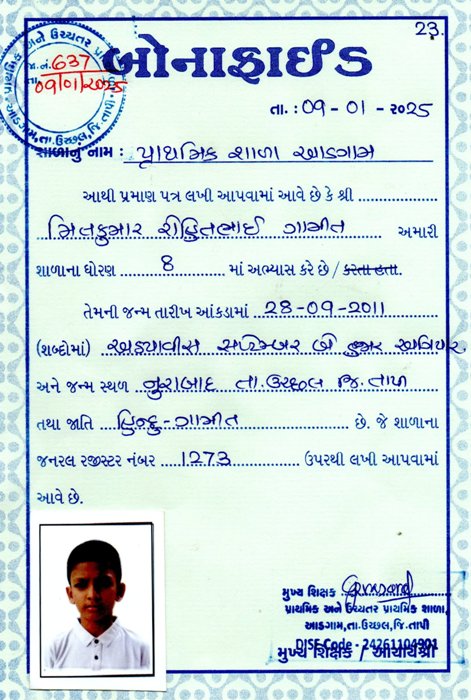 23.
પ્રાથમિક અને ઉચ્ચતર
જા.નં. 637
તા. 09/01/2025
આડગામ, તા. ઉચ્છલ, જિ. તાપી
બોનાફાઈડ
તા. : 09 - 01 - ૨૦25
શાળાનું નામ : પ્રાથમિક શાળા આડગામ
આથી પ્રમાણ પત્ર લખી આપવામાં આવે છે કે શ્રી
મિતકુમાર રોહિતભાઈ ગામીત અમારી
શાળાના ધોરણ 8 માં અભ્યાસ કરે છે / કરતા હતા.
તેમની જન્મ તારીખ આંકડામાં 28-09-2011
(શબ્દોમાં) અઠ્યાવીસ સપ્ટેમ્બર બે હજાર અગિયાર.
અને જન્મ સ્થળ નુરાબાદ તા. ઉચ્છલ જિ. તાપી
તથા જાતિ હિન્દુ - ગામીત છે. જે શાળાના
જનરલ રજીસ્ટર નંબર 1273 ઉપરથી લખી આપવામાં
આવે છે.
મુખ્ય શિક્ષક
પ્રાથમિક અને ઉચ્ચતર પ્રાથમિક શાળા,
આડગામ, તા. ઉચ્છલ, જિ. તાપી
DISE Code - 24261104901
મુખ્ય શિક્ષક / આચાર્યશ્રી